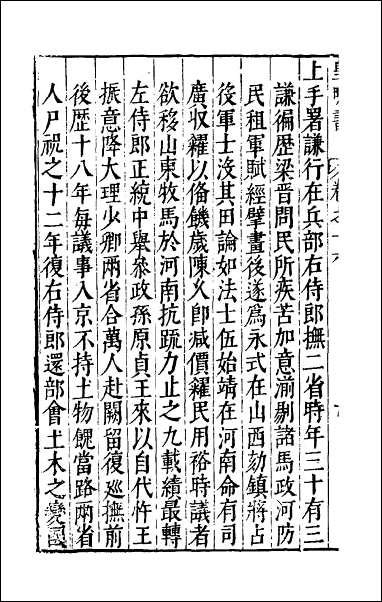 上手署謙行在兵部右侍郎撫二省時年三十有三
謙徧歷梁晋問民所疾苦加意湔剔諸馬政河防
民租軍賦經畫後遂爲永式在山西劾鎮將占
後軍士没其田論如法士伍始靖在河南命有司
廣收糴以備饑歲陳乂卽減價糶民用裕時議者
欲移山東牧馬於河南抗疏力止之九載績最轉
左侍郎正統中舉叅政孫原貞王來以自代忤王
振意降大理少卿兩省合萬人赴闕留復巡撫前
後歷十八年每議事入京不持土物餽當路兩省
人尸祝之十二年復右侍郎還部會土木之變國